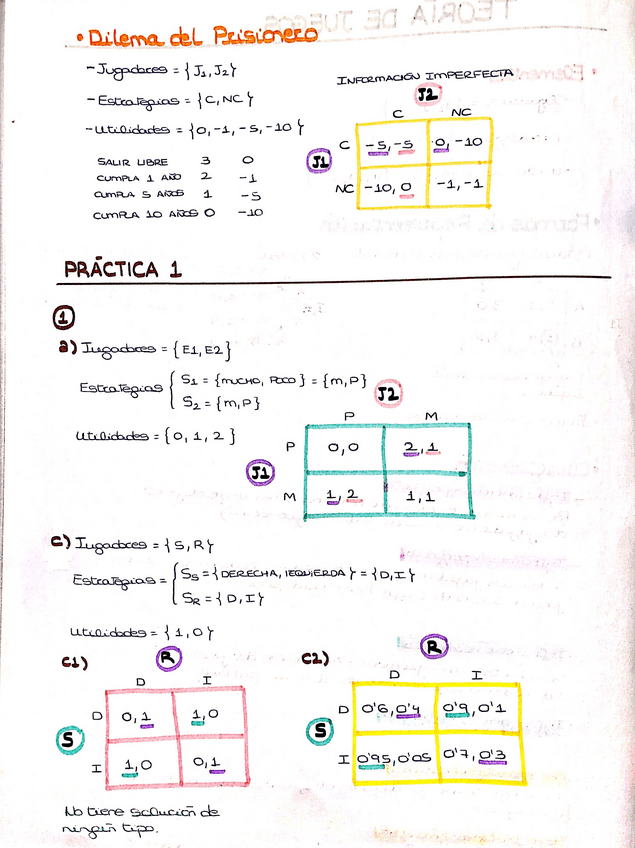 • Dilema del Prisionero
- Jugadores = {J1, J2}
- Estrategias = {C, NC}
- Utilidades = {0, -1, -5, -10}
SALIR LIBRE 3 0
CUMPLA 1 AÑO 2 -1
CUMPLA 5 AÑOS 1 -5
CUMPLA 10 AÑOS 0 -10
INFORMACIÓN IMPERFECTA
J2
C NC
J1
C -5, -5 0, -10
NC -10, 0 -1, -1
PRÁCTICA 1
1
a) Jugadores = {E1, E2}
Estrategias { S1 = {MUCHO, POCO} = {m, P}
S2 = {m, P}
Utilidades = {0, 1, 2}
J2
P M
J1
P 0,0 2,1
M 1,2 1,1
c) Jugadores = {S, R}
Estrategias = { SS = {DERECHA, IZQUIERDA} = {D, I}
SR = {D, I}
Utilidades = {1, 0}
C1)
R
D I
S
D 0,1 1,0
I 1,0 0,1
No tiene solución de
ningún tipo.
C2)
R
D I
S
D 0'6, 0'4 0'9, 0'1
I 0'95, 0'05 0'7, 0'3